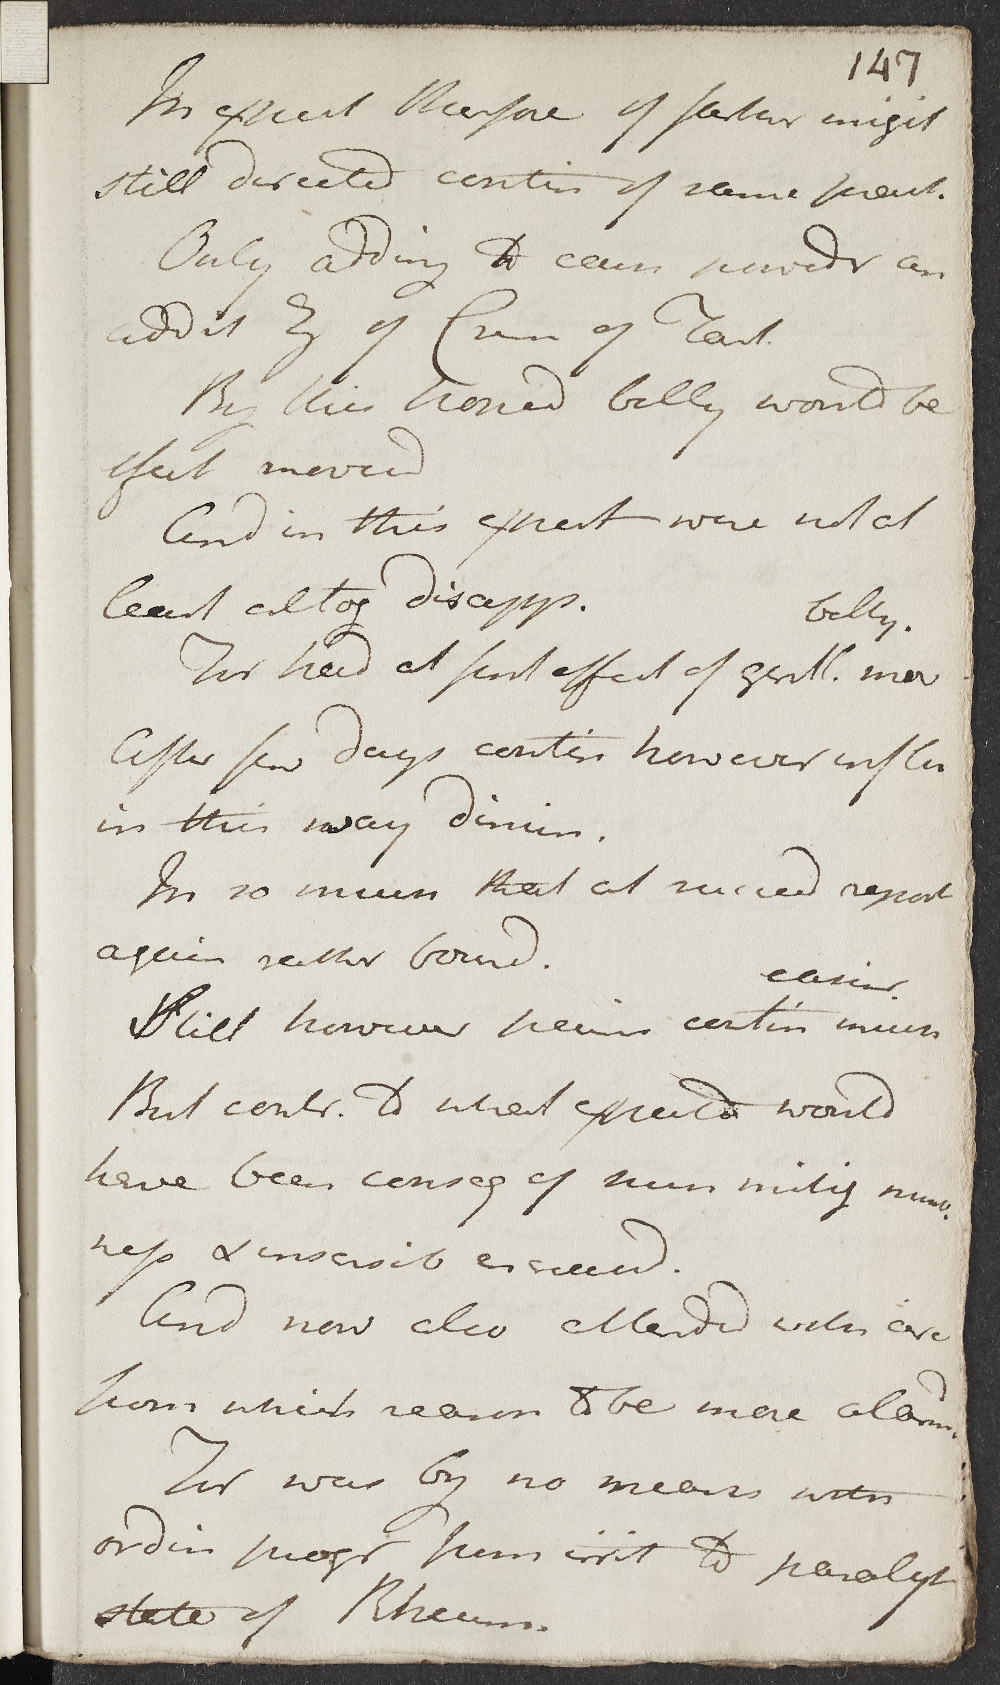 147
In expect therefore of farther migit
still directed contin of same pract.
Only adding to each powder an
addit Ʒ of Crem of Tart.
By this hoped belly would be
effect moved
And in this expect were not at
least altog disapp.
belly.
This had at first effect of gentl. mov
After few days contin however influ
in this way dimin.
In so much that at succeed report
again rather bound.
easier.
Still however pain contin much
But contr. to what expected would
have been conseq of such mitig numb.
ness & insensib encreased.
And now also attended with
from which reason to be more alarm.
This was by no means with
ordin progr from irrit to paralyt
state of Rheum.